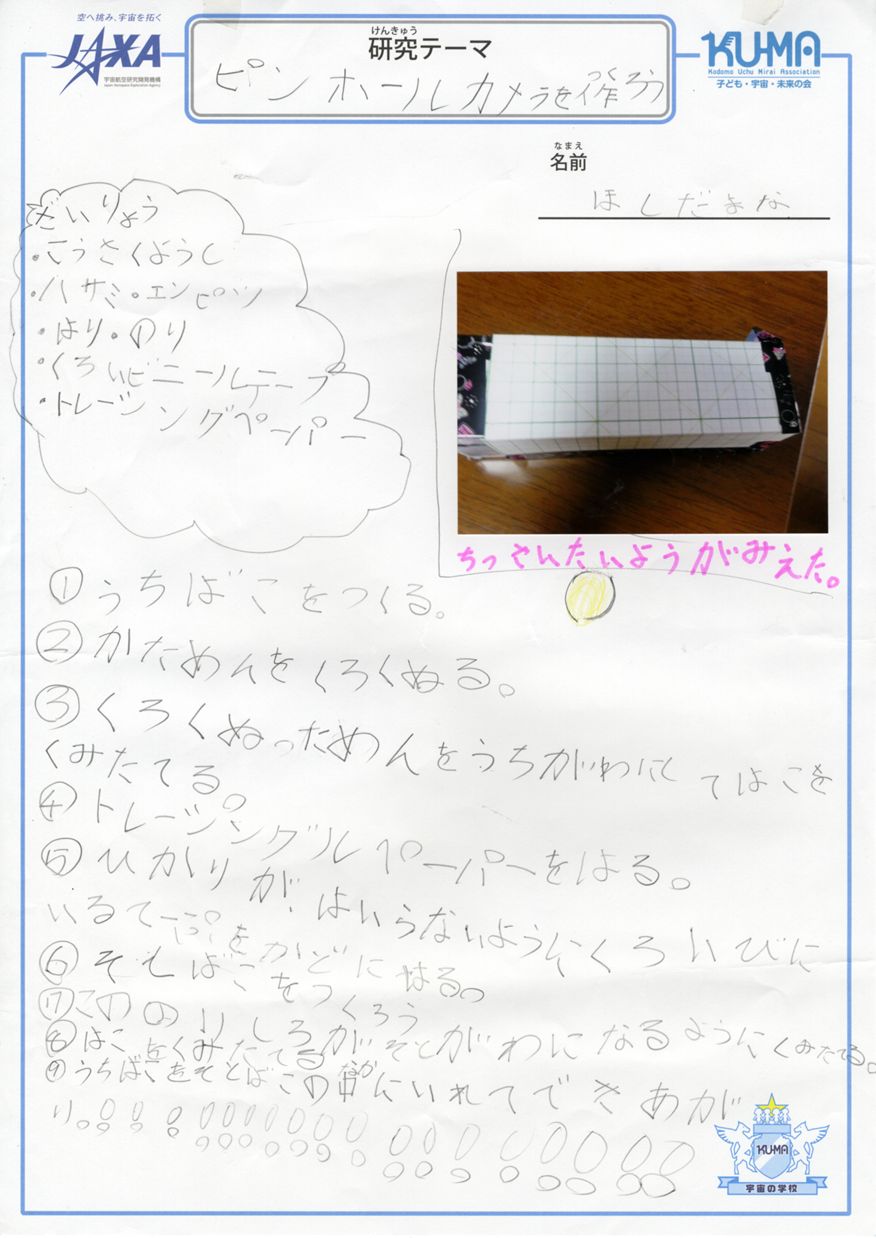 空へ挑み、宇宙を拓く
JAXA
宇宙航空研究開発機構
Japan Aerospace Exploration Agency
けんきゅう
研究テーマ
ピンホールカメラを作ろう
つく
KU-MA
Kodomo Uchu Mirai Association
子ども・宇宙・未来の会
なまえ
名前
ほしだまな
ざいりょう
・こうさくようし
・ハサミ・エンピツ
・はり・のり
・くろいビニールテープ
・トレーシングペーパー
ちっさんたいようがみえた。
①うちばこをつくる。
②かためんをくろくぬる。
③くろくぬっためんをうちがわにしてはこを
くみたてる。
④トレーシングルペーパーをはる。
⑤ひかりが、はいらないようにくろいびに
いるてーぷをかどにはる。
⑥そとばこをつくろう
⑦こののりしろがそとがわになるようにくみたてる。
⑧はこをくみたてる
⑨うちばこをそとばこの中にいれてできあが
なか
り。
KU-MA
宇宙の学校